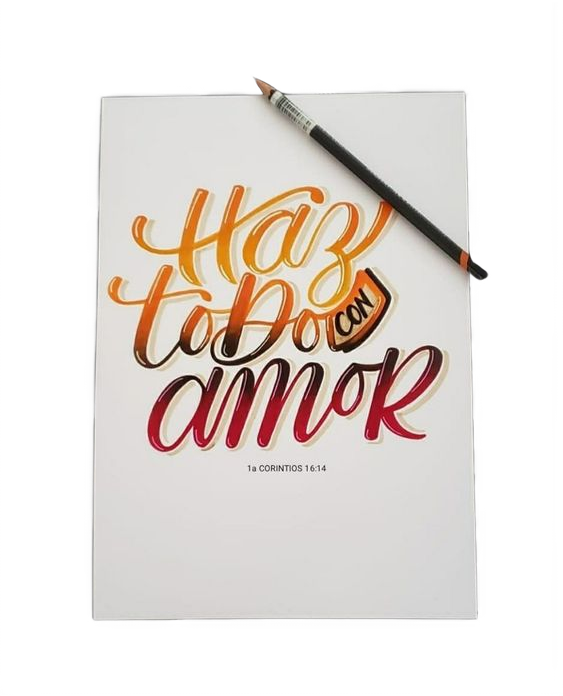 Haz
toDo CON
amoR
1a CORINTIOS 16:14